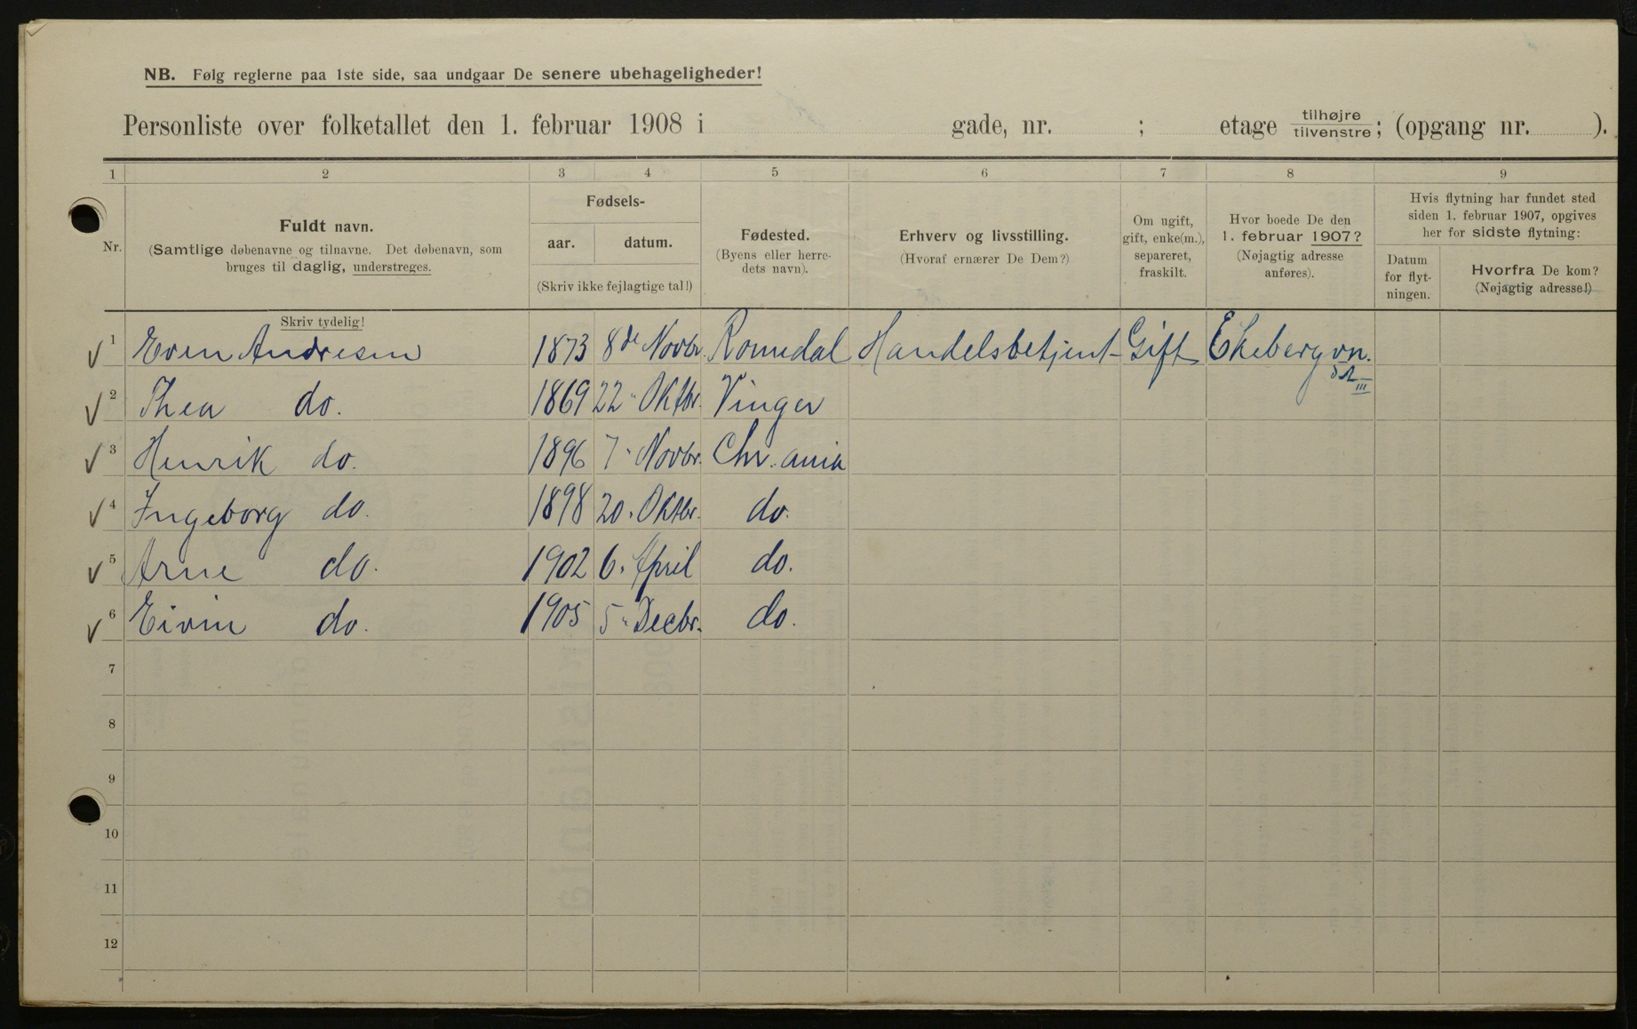 NB. Følg reglerne paa 1ste side, saa undgaar De senere ubehageligheder!
Personliste over folketallet den 1. februar 1908 i gade, nr. ; etage tilhøjre tilvenstre; (opgang nr. ).
1 2 3 4 5 6 7 8 9
Nr.
Fuldt navn.
(Samtlige døbenavne og tilnavne. Det døbenavn, som
bruges til daglig, understreges.
Skriv tydelig!
Fødsels-
aar. datum.
(Skriv ikke fejlagtige tal!)
Fødested.
(Byens eller herre-
dets navn).
Erhverv og livsstilling.
(Hvoraf ernærer De Dem?)
Om ugift,
gift, enke(m.),
separeret,
fraskilt.
Hvor boede De den
1. februar 1907?
(Nøjagtig adresse
anføres).
Hvis flytning har fundet sted
siden 1. februar 1907, opgives
her for sidste flytning:
Datum
for flyt-
ningen.
Hvorfra De kom?
(Nøjagtig adresse!)
1 Even Andresen 1873 8de Novbr. Romedal Handelsbetjent Gift Ekebergvn.
III
2 Thea do. 1869 22 Oktbr. Vinger
3 Henrik do. 1896 7 Novbr. Chr.ania
4 Ingeborg do. 1898 20. Oktbr. do.
5 Arne do. 1902 6. April do.
6 Eivin do. 1905 5 Decbr. do.
7
8
9
10
11
12